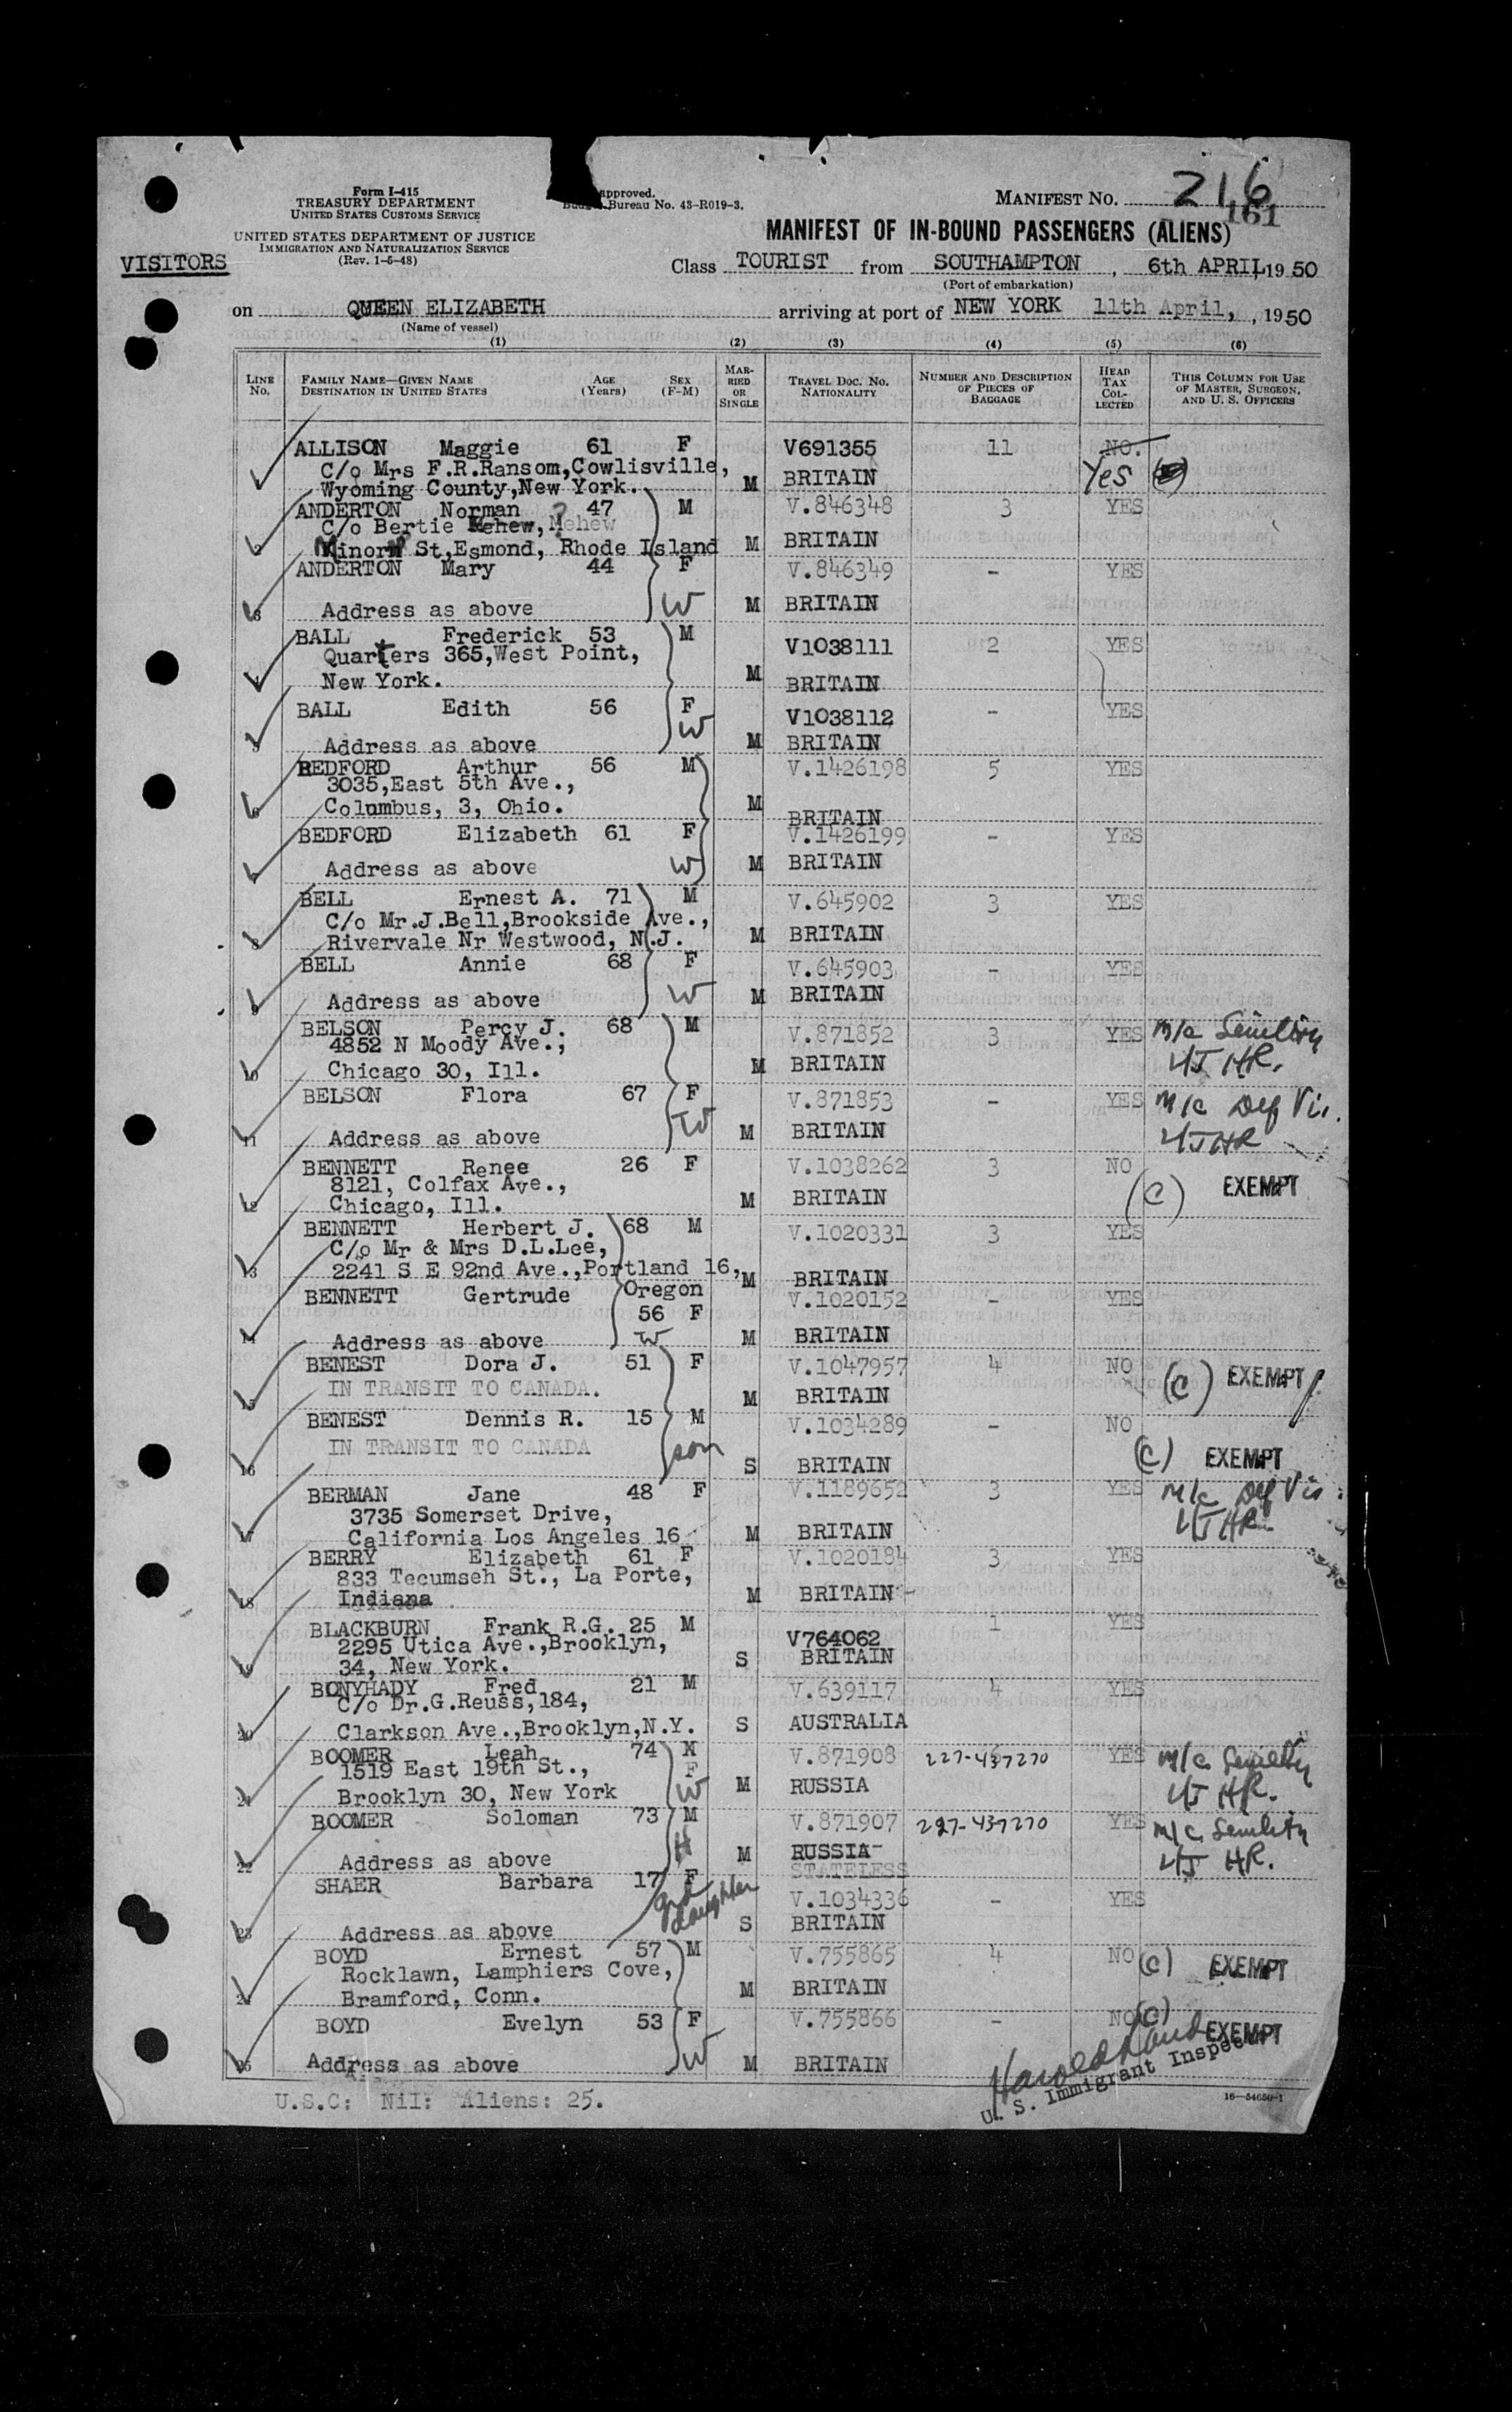 Form I-415
TREASURY DEPARTMENT
UNITED STATES CUSTOMS SERVICE
UNITED STATES DEPARTMENT OF JUSTICE
IMMIGRATION AND NATURALIZATION SERVICE
(Rev. 1-5-48)
approved.
Bureau No. 43-R019-3.
MANIFEST NO. 216
161
MANIFEST OF IN-BOUND PASSENGERS (ALIENS)
VISITORS
Class TOURIST from SOUTHAMPTON, 6th APRIL, 1950
(Port of embarkation)
on QUEEN ELIZABETH arriving at port of NEW YORK 11th April, , 1950
(Name of vessel)
(1) (2) (3) (4) (5) (6)
LINE No. FAMILY NAME—GIVEN NAME DESTINATION IN UNITED STATES AGE (Years) SEX (F-M) MARRIED OR SINGLE TRAVEL DOC. NO. NATIONALITY NUMBER AND DESCRIPTION OF PIECES OF BAGGAGE HEAD TAX COLLECTED THIS COLUMN FOR USE OF MASTER, SURGEON, AND U. S. OFFICERS
ALLISON Maggie 61 F V691355 11 NO.
C/o Mrs F.R.Ransom,Cowlisville, Yes
Wyoming County,New York. M BRITAIN
ANDERTON Norman 47 M V.846348 3 YES
C/o Bertie Mehew, Mehew ?
2 Minor St,Esmond, Rhode Island M BRITAIN
ANDERTON Mary 44 F V.846349 - YES
3 Address as above W M BRITAIN
BALL Frederick 53 M V1038111 2 YES
Quarters 365,West Point,
4 New York. M BRITAIN
BALL Edith 56 F V1038112 - YES
5 Address as above W M BRITAIN
BEDFORD Arthur 56 M V.1426198 5 YES
3035,East 5th Ave.,
6 Columbus, 3, Ohio. M BRITAIN
BEDFORD Elizabeth 61 F V.1426199 - YES
7 Address as above W M BRITAIN
BELL Ernest A. 71 M V.645902 3 YES
C/o Mr.J.Bell,Brookside Ave.,
8 Rivervale Nr Westwood, N.J. M BRITAIN
BELL Annie 68 F V.645903 - YES
9 Address as above W M BRITAIN
BELSON Percy J. 68 M V.871852 3 YES m/c Senility
4852 N Moody Ave.,
10 Chicago 30, Ill. M BRITAIN HR.
BELSON Flora 67 F V.871853 - YES m/c Def Vis.
11 Address as above W M BRITAIN HR
BENNETT Renee 26 F V.1038262 3 NO
8121, Colfax Ave., (C) EXEMPT
12 Chicago, Ill. M BRITAIN
BENNETT Herbert J. 68 M V.1020331 3 YES
C/o Mr & Mrs D.L.Lee,
13 2241 S E 92nd Ave.,Portland 16, M BRITAIN
Oregon
BENNETT Gertrude 56 F V.1020152 - YES
14 Address as above W M BRITAIN
BENEST Dora J. 51 F V.1047957 4 NO (C) EXEMPT
15 IN TRANSIT TO CANADA. M BRITAIN
BENEST Dennis R. 15 M V.1034289 - NO
16 IN TRANSIT TO CANADA son S BRITAIN (C) EXEMPT
BERMAN Jane 48 F V.1189652 3 YES m/c Def Vis.
3735 Somerset Drive,
17 California Los Angeles 16 M BRITAIN HR
BERRY Elizabeth 61 F V.1020184 3 YES
833 Tecumseh St., La Porte,
18 Indiana M BRITAIN
BLACKBURN Frank R.G. 25 M V764062 1 YES
2295 Utica Ave.,Brooklyn,
19 34, New York. S BRITAIN
BONYHADY Fred 21 M V.639117 4 YES
C/o Dr.G.Reuss,184,
20 Clarkson Ave.,Brooklyn,N.Y. S AUSTRALIA
BOOMER Leah 74 M F V.871908 227-437270 YES m/c Senility
1519 East 19th St.,
21 Brooklyn 30, New York W M RUSSIA HR.
BOOMER Soloman 73 M V.871907 227-437270 YES m/c Senility
22 Address as above H M RUSSIA HR.
STATELESS
SHAER Barbara 17 F V.1034336 - YES
23 Address as above gd daughter S BRITAIN
BOYD Ernest 57 M V.755865 4 NO (C) EXEMPT
Rocklawn, Lamphiers Cove,
24 Bramford, Conn. M BRITAIN
BOYD Evelyn 53 F V.755866 - NO (C) EXEMPT
25 Address as above W M BRITAIN
Harold
U. S. Immigrant Inspector
U.S.C: Nil: Aliens: 25.
16—54650-1